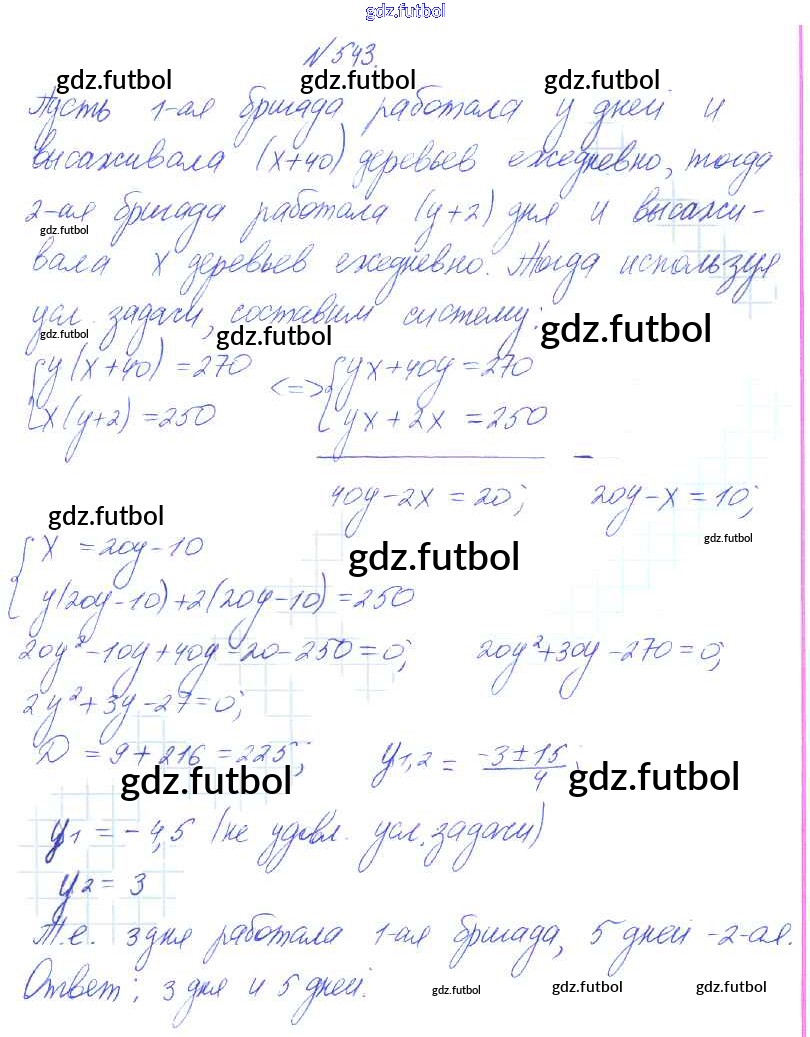 gdz.futbol
N 543.
gdz.futbol gdz.futbol gdz.futbol
Пусть 1-ая бригада работала y дней и
высаживала (x+40) деревьев ежедневно, тогда
2-ая бригада работала (y+2) дня и высажи-
gdz.futbol
вала x деревьев ежедневно. Тогда используя
усл. задачи, составим систему:
gdz.futbol gdz.futbol gdz.futbol
{ y(x+40) = 270 <=> { yx+40y = 270
x(y+2) = 250 yx + 2x = 250
40y-2x = 20; 20y-x = 10;
gdz.futbol gdz.futbol
{ x = 20y-10
gdz.futbol
y(20y-10)+2(20y-10) = 250
20y²-10y+40y-20-250=0; 20y²+30y-270=0;
2y²+3y-27=0;
D = 9+216 = 225; y1,2 = -3±15/4;
gdz.futbol gdz.futbol
y1 = -4,5 (не удовл. усл. задачи)
y2 = 3
Т.е. 3 дня работала 1-ая бригада, 5 дней -2-ая.
Ответ: 3 дня и 5 дней.
gdz.futbol gdz.futbol gdz.futbol